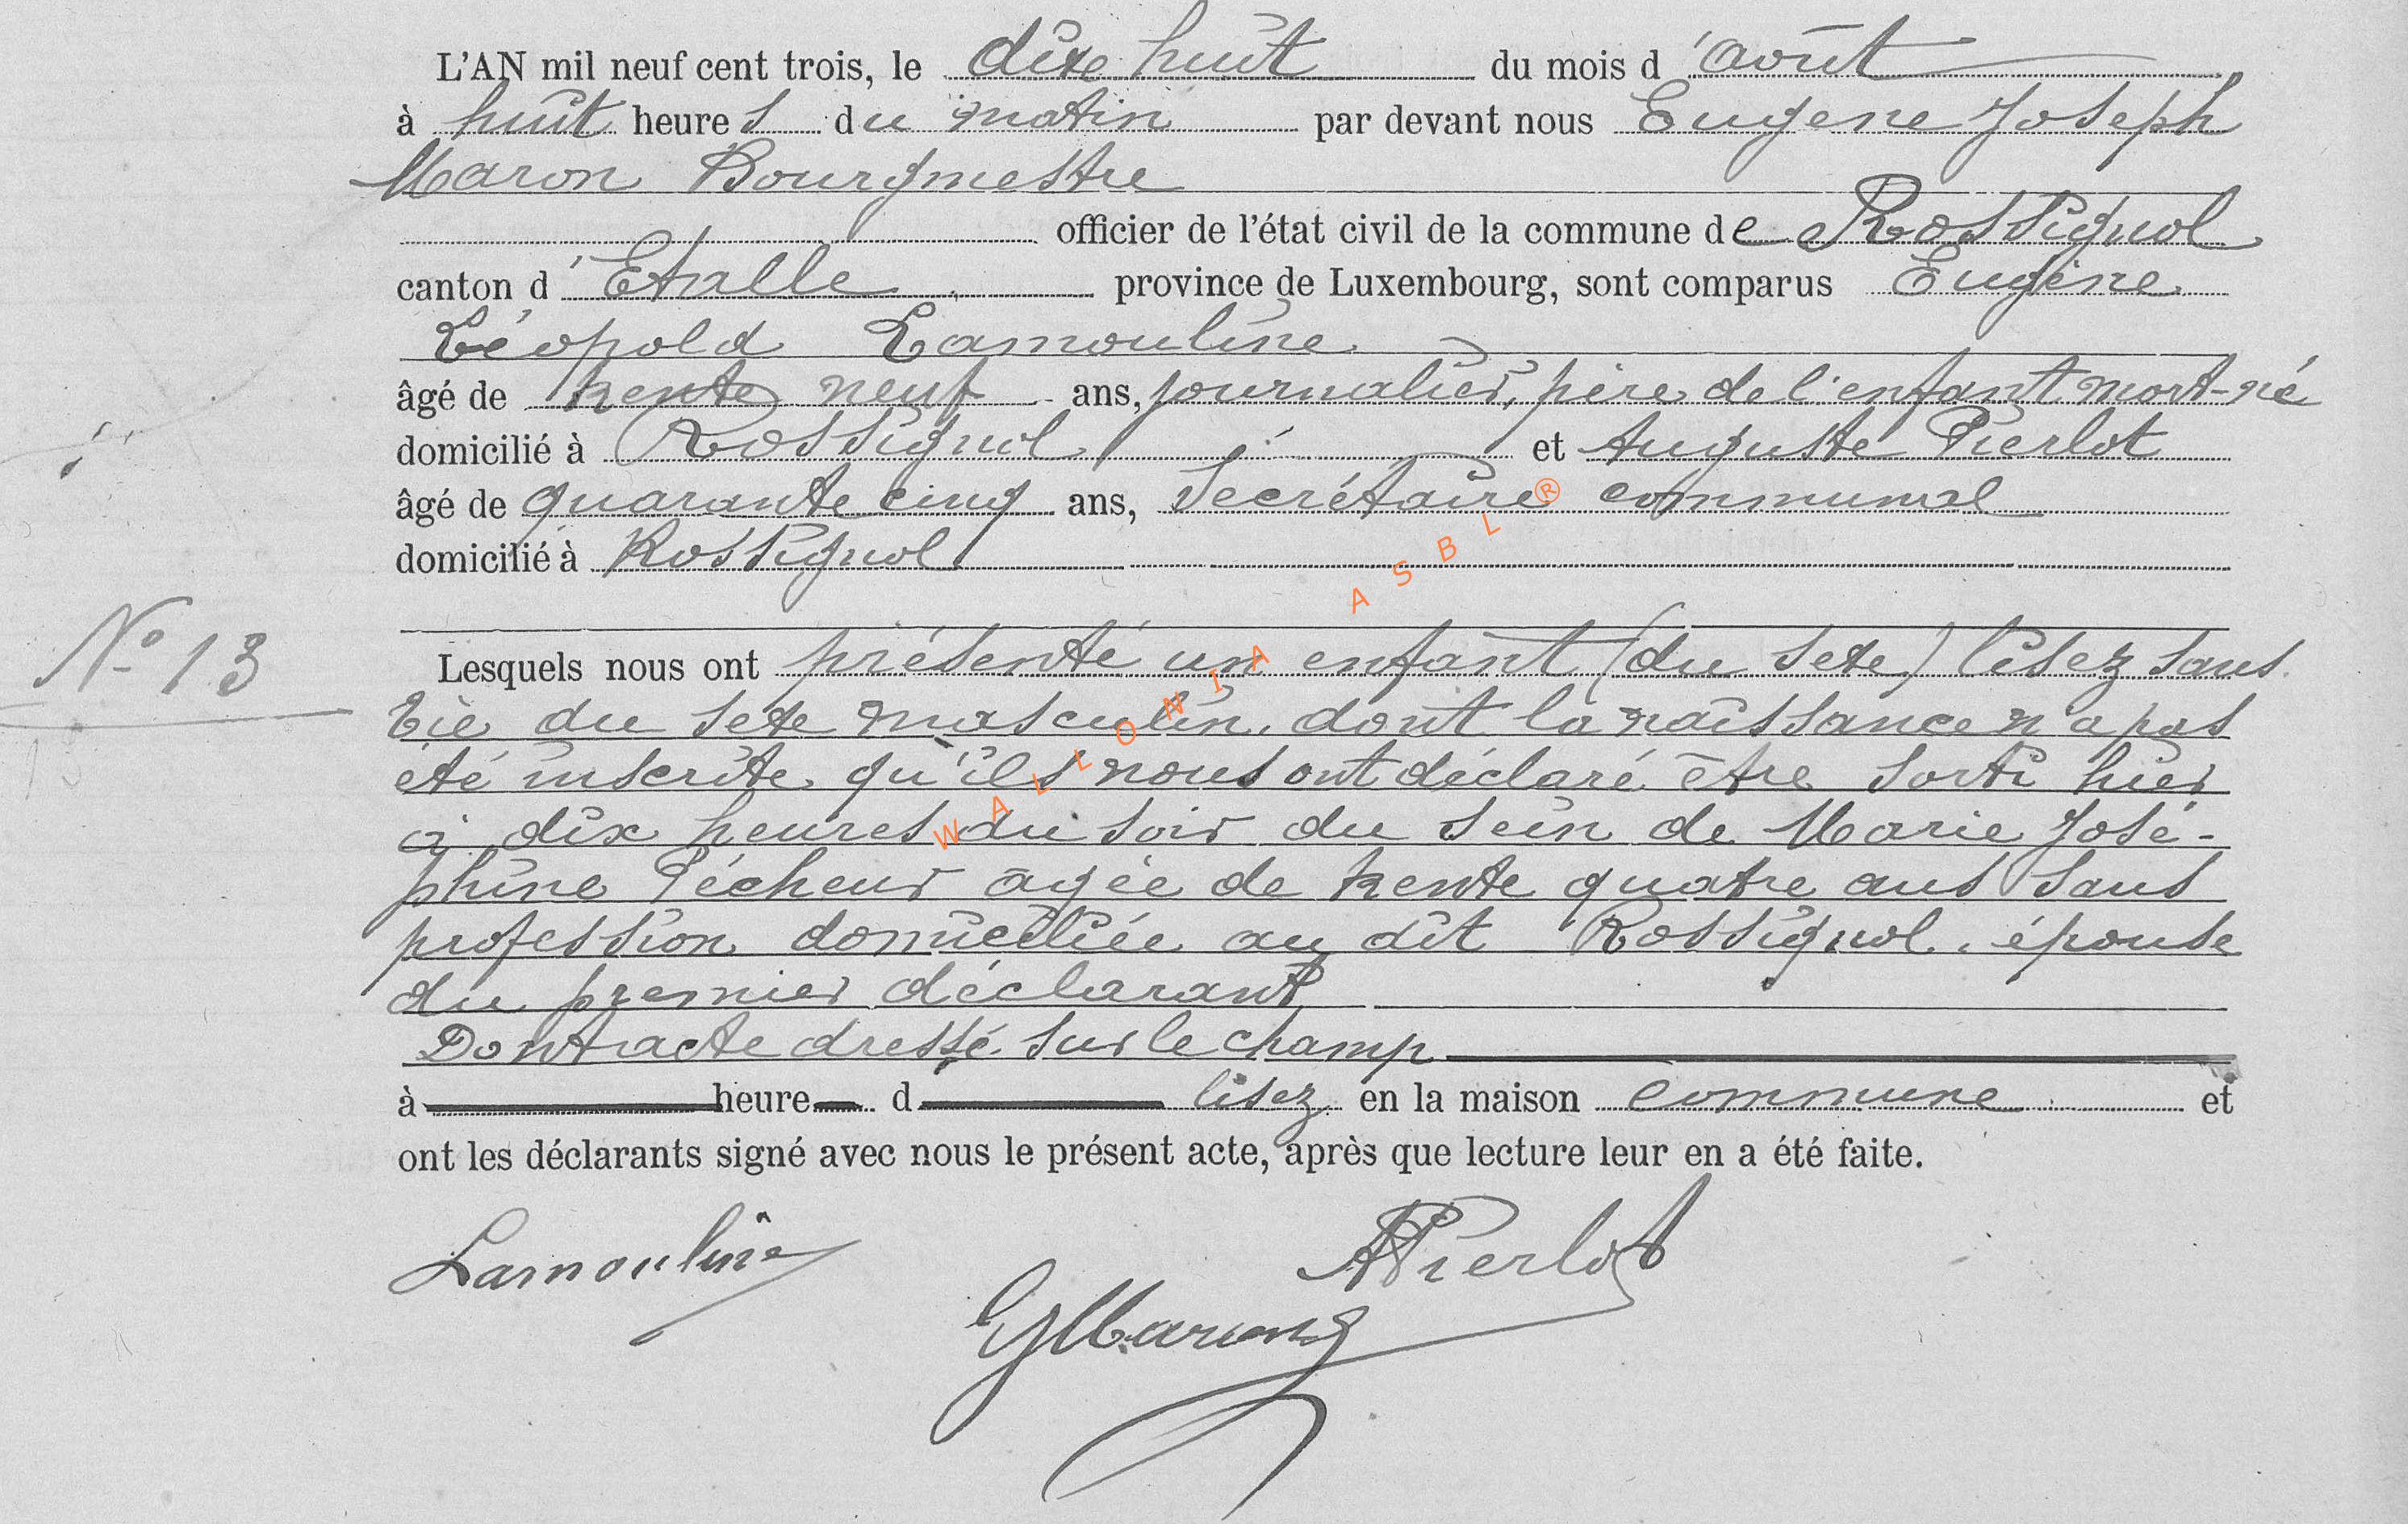 L'AN mil neuf cent trois, le dixe huit du mois d'août
à huit heures du matin par devant nous Eugene Joseph
Maron Bourgmestre
officier de l'état civil de la commune de Rossignol
canton d'Etalle province de Luxembourg, sont comparus Eugène
Léopold Lamouline
âgé de trente neuf ans, journalier, père de l'enfant mort-né
domicilié à Rossignol et Auguste Pierlot
âgé de quarante cinq ans, Secrétaire communal
domicilié à Rossignol
N° 13
Lesquels nous ont présenté un enfant (du sexe) lisez sans
vie du sexe masculin, dont la naissance n'a pas
été inscrite qu'ils nous ont déclaré être sorti hier
à dix heures du soir du sein de Marie José-
phine Pécheur agée de trente quatre ans sans
profession domiciliée au dit Rossignol, épouse
du premier déclarant
Dont acte dressé sur le champ
à heure d lisez en la maison commune et
ont les déclarants signé avec nous le présent acte, après que lecture leur en a été faite.
Lamouline
APierlot
EJMaron
WALLONIA ASBL ®